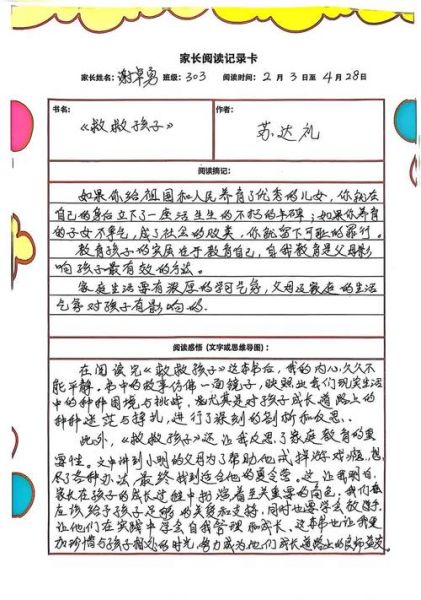 家长阅读记录卡
家长姓名：谢卓勇 班级：303 阅读时间：2月3日至4月28日
书名：
《救救孩子》
作者：
苏达礼
阅读摘记：
如果你给祖国和人民养育了优秀的儿女，你就在
自己的身后立下了一座活生生的不朽的丰碑；如果你养育
的子女不争气，成了社会的败类，你就留下可耻的罪行。
教育孩子的实质在于教育自己，自我教育是父母影
响孩子最有效的方法。
家庭生活要有浓厚的学习气氛，父母及家庭的生活
气氛对孩子有影响的.
阅读感悟（文字或思维导图）：
在阅读完《救救孩子》这本书后，我的内心久久不
能平静。书中的故事仿佛一面镜子，映照出我们现实生活
中的种种困境与挑战，尤其是对孩子成长道路上的
种种迷茫与挣扎，进行了深刻的剖析和反思.
此外，《救救孩子》还让我反思了家庭教育的重
要性。文中讲到小明的父母为了帮助他戒掉游戏瘾，想
尽了各种办法，最终找到适合他的夏令营。这让我明白，
家长在孩子的成长过程中扮演着至关重要的角色，我们要
应该给予孩子足够的关爱和支持，同时也要学会放手，
让他们在实践中学会自我管理和成长。这本书也让我更
加珍惜与孩子相处的时光，努力成为他们成长道路上的良师益友